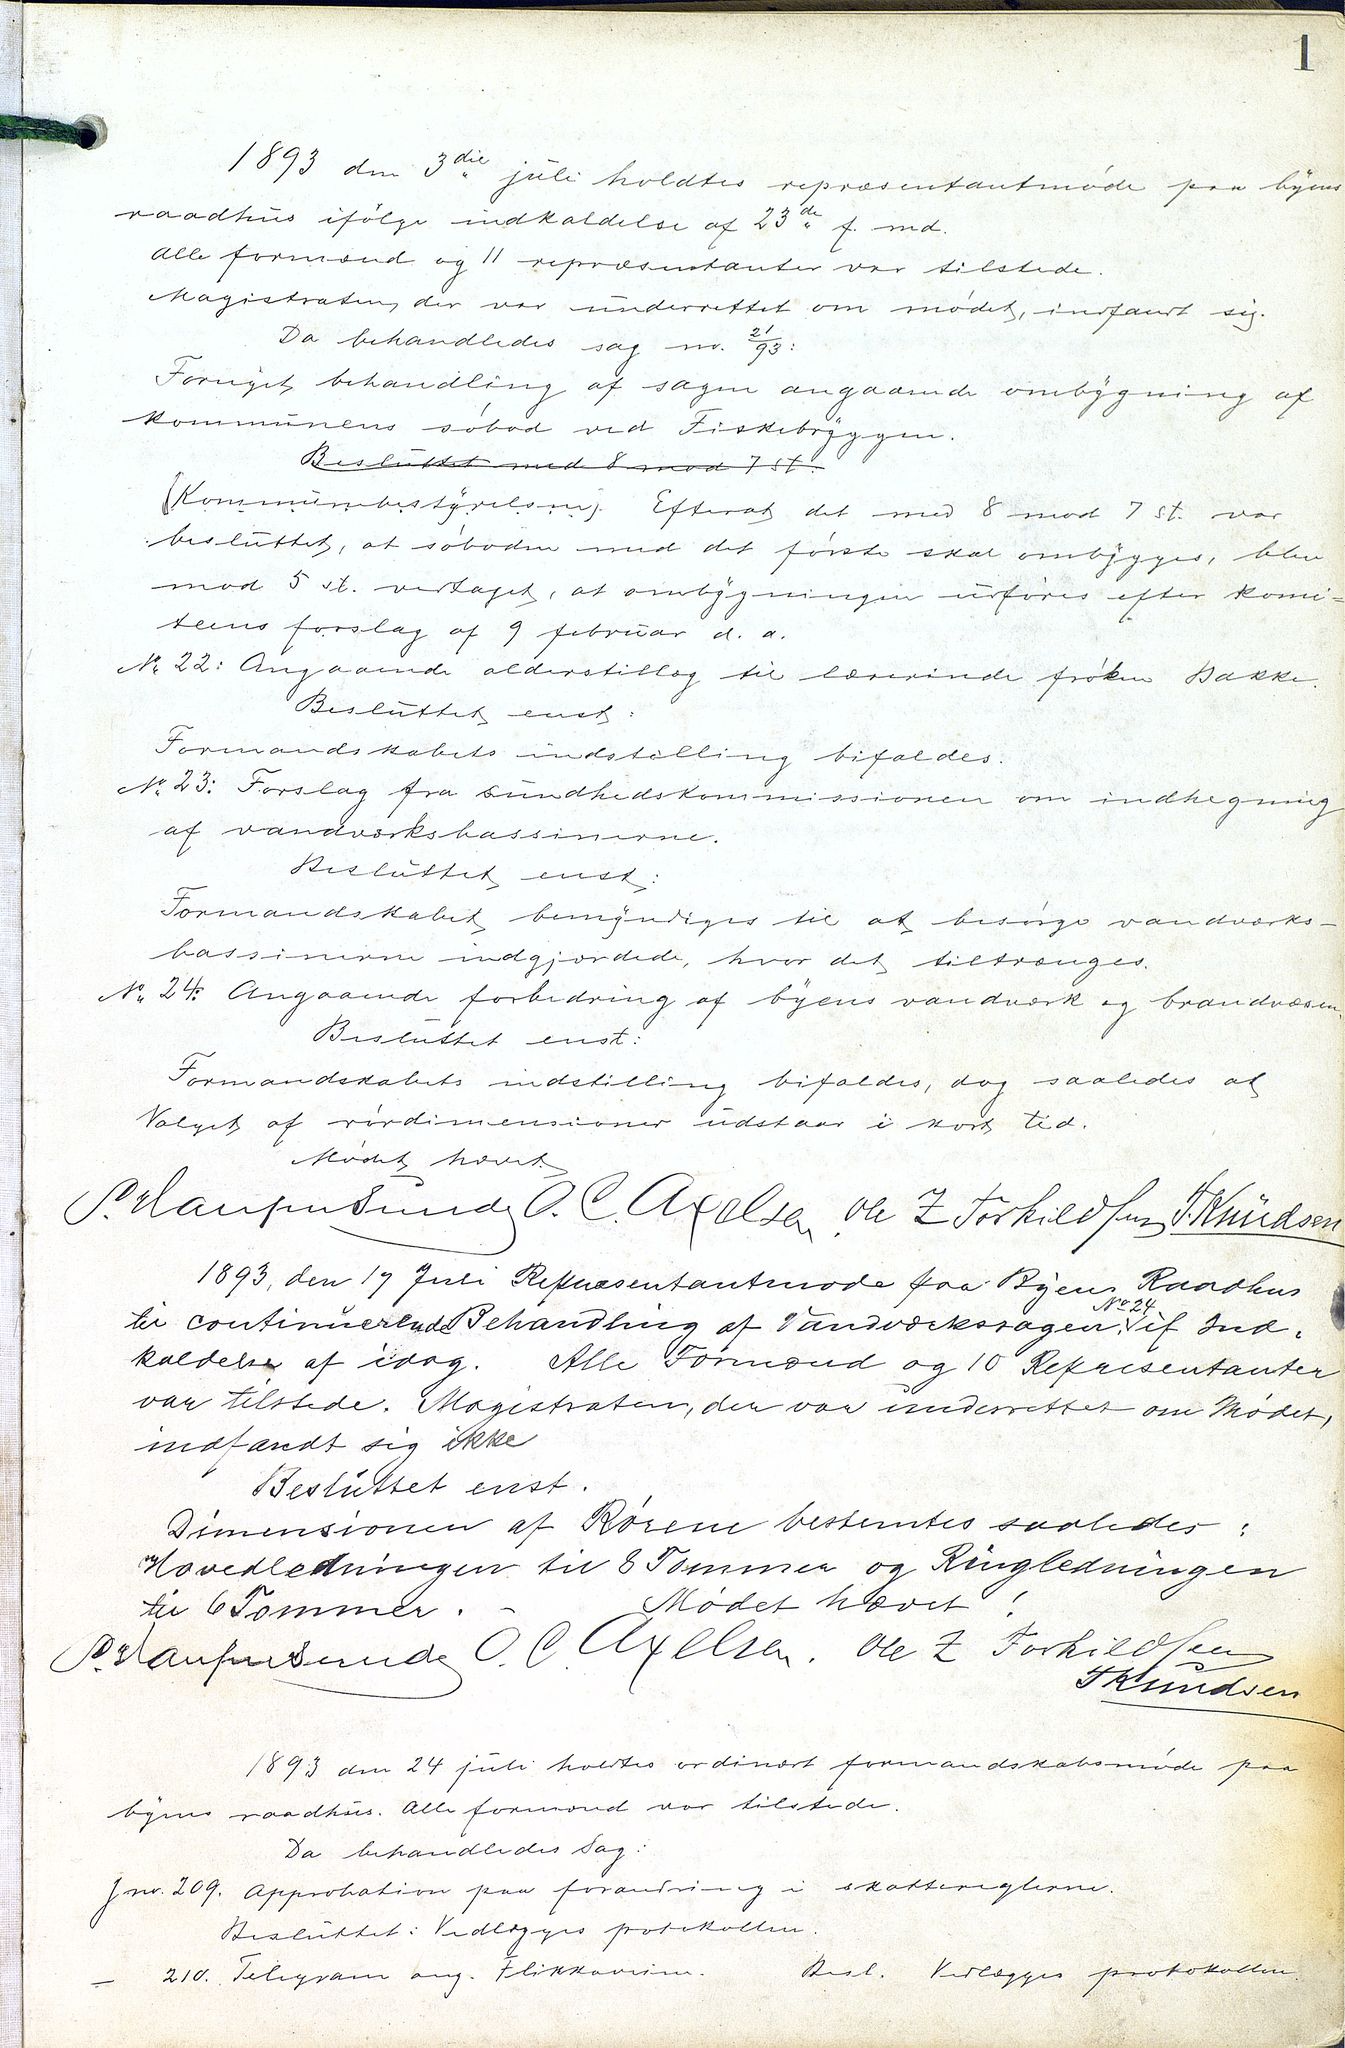 1
1893 den 3die juli holdtes repræsentantmøde paa byens
raadhus ifølge indkaldelse af 23de f. md.
Alle formænd og 11 repræsentanter var tilstede.
Magistraten, der var underrettet om mødet, indfandt sig.
Da behandledes sag no. 21/93:
Fornyet behandling af sagen angaaende ombygning af
kommunens søbod ved Fiskebryggen.
Besluttet med 8 mod 7 st.
(Kommunebestyrelsen). Efterat det med 8 mod 7 st. var
besluttet, at søboden med det første skal ombygges, blev
mod 5 st. vedtaget, at ombygningen udføres efter komi-
teens forslag af 9 februar d. a.
No. 22: Angaaende alderstillæg til lærerinde frøken Bakke.
Besluttet enst:
Formandskabets indstilling bifaldes.
No. 23: Forslag fra sundhedskommissionen om indhegning
af vandværksbassinerne.
Besluttet enst:
Formandskabet bemyndiges til at besørge vandværks-
bassinerne indgjærdede, hvor det tiltrænges.
No. 24: Angaaende forbedring af byens vandværk og brandvæsen.
Besluttet enst:
Formandskabets indstilling bifaldes, dog saaledes at
Valget af rørdimensioner udstaar i kort tid.
Mødet hævet
O. C. Axelsen. Ole Z Torkildsen T. Knudsen
1893, den 17 Juli Repræsentantmøde paa Byens Raadhus
til continuerende Behandling af Vandværkssagen, No 24 if Ind-
kaldelse af idag. Alle Formænd og 10 Representanter
var tilstede. Magistraten, der var underrettet om Mødet,
indfandt sig ikke
Besluttet enst.
Dimensionen af Rørene bestemtes saaledes:
Hovedledningen til 8 Tommer og Ringledningen
til 6 Tommer. - Mødet hævet!
O. C. Axelsen. Ole Z Torkildsen
T Knudsen
1893 den 24 juli holdtes ordinært formandskabsmøde paa
byens raadhus. Alle formænd var tilstede.
Da behandledes Sag:
J no. 209. Approbation paa forandring i skattereglerne.
Besluttet: Vedlægges protokollen.
— 210. Telegram ang. Flikkaveien. Besl. Vedlægges protokollen.